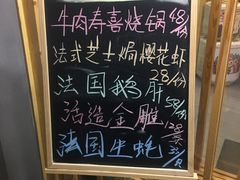 牛肉寿喜烧锅 48/份
法式芝士焗樱花虾
28/份
法国鹅肝 58/份
活造金雕 128/条
法国生蚝 35/只